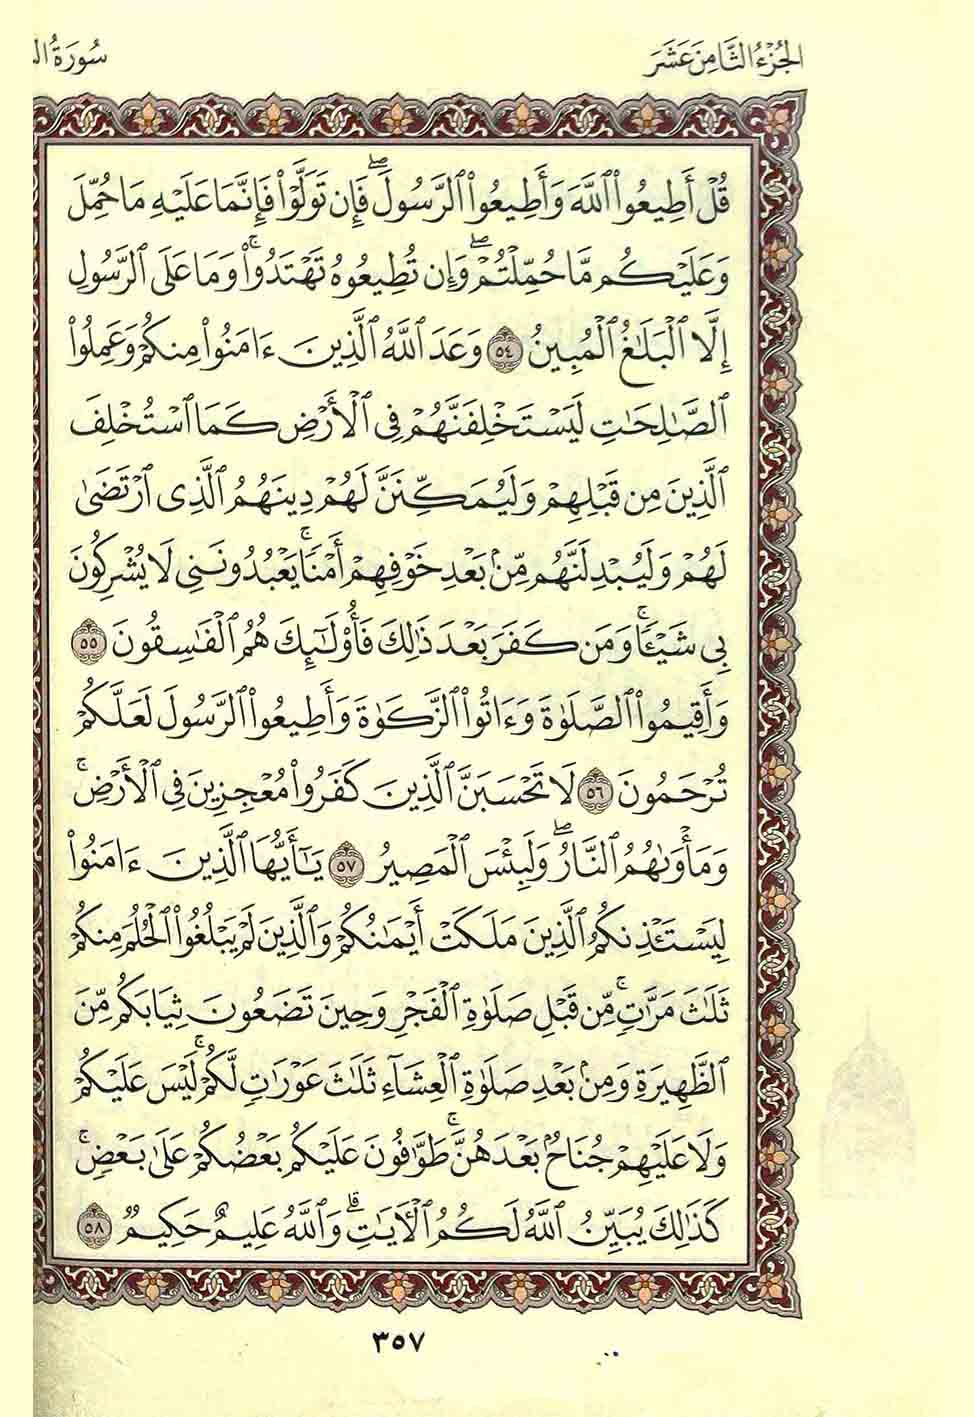 الجُزْءُ الثَّامِنَ عَشَرَ
سُورَةُ
قُلْ أَطِيعُوا۟ ٱللَّهَ وَأَطِيعُوا۟ ٱلرَّسُولَ ۖ فَإِن تَوَلَّوْا۟ فَإِنَّمَا عَلَيْهِ مَا حُمِّلَ
وَعَلَيْكُم مَّا حُمِّلْتُمْ ۖ وَإِن تُطِيعُوهُ تَهْتَدُوا۟ ۚ وَمَا عَلَى ٱلرَّسُولِ
إِلَّا ٱلْبَلَـٰغُ ٱلْمُبِينُ ٥٤ وَعَدَ ٱللَّهُ ٱلَّذِينَ ءَامَنُوا۟ مِنكُمْ وَعَمِلُوا۟
ٱلصَّـٰلِحَـٰتِ لَيَسْتَخْلِفَنَّهُمْ فِى ٱلْأَرْضِ كَمَا ٱسْتَخْلَفَ
ٱلَّذِينَ مِن قَبْلِهِمْ وَلَيُمَكِّنَنَّ لَهُمْ دِينَهُمُ ٱلَّذِى ٱرْتَضَىٰ
لَهُمْ وَلَيُبَدِّلَنَّهُم مِّنۢ بَعْدِ خَوْفِهِمْ أَمْنًا ۚ يَعْبُدُونَنِى لَا يُشْرِكُونَ
بِى شَيْـًٔا ۚ وَمَن كَفَرَ بَعْدَ ذَٰلِكَ فَأُو۟لَـٰٓئِكَ هُمُ ٱلْفَـٰسِقُونَ ٥٥
وَأَقِيمُوا۟ ٱلصَّلَوٰةَ وَءَاتُوا۟ ٱلزَّكَوٰةَ وَأَطِيعُوا۟ ٱلرَّسُولَ لَعَلَّكُمْ
تُرْحَمُونَ ٥٦ لَا تَحْسَبَنَّ ٱلَّذِينَ كَفَرُوا۟ مُعْجِزِينَ فِى ٱلْأَرْضِ ۚ
وَمَأْوَىٰهُمُ ٱلنَّارُ ۖ وَلَبِئْسَ ٱلْمَصِيرُ ٥٧ يَـٰٓأَيُّهَا ٱلَّذِينَ ءَامَنُوا۟
لِيَسْتَـْٔذِنكُمُ ٱلَّذِينَ مَلَكَتْ أَيْمَـٰنُكُمْ وَٱلَّذِينَ لَمْ يَبْلُغُوا۟ ٱلْحُلُمَ مِنكُمْ
ثَلَـٰثَ مَرَّٰتٍ ۚ مِّن قَبْلِ صَلَوٰةِ ٱلْفَجْرِ وَحِينَ تَضَعُونَ ثِيَابَكُم مِّنَ
ٱلظَّهِيرَةِ وَمِنۢ بَعْدِ صَلَوٰةِ ٱلْعِشَآءِ ۚ ثَلَـٰثُ عَوْرَٰتٍ لَّكُمْ ۚ لَيْسَ عَلَيْكُمْ
وَلَا عَلَيْهِمْ جُنَاحٌۢ بَعْدَهُنَّ ۚ طَوَّٰفُونَ عَلَيْكُم بَعْضُكُمْ عَلَىٰ بَعْضٍ ۚ
كَذَٰلِكَ يُبَيِّنُ ٱللَّهُ لَكُمُ ٱلْـَٔايَـٰتِ ۗ وَٱللَّهُ عَلِيمٌ حَكِيمٌ ٥٨
٣٥٧